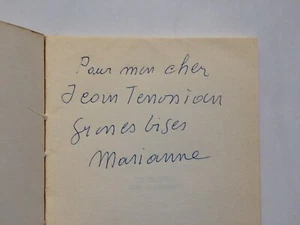 Pour mon cher
Jean
Grosses bises
Marianne